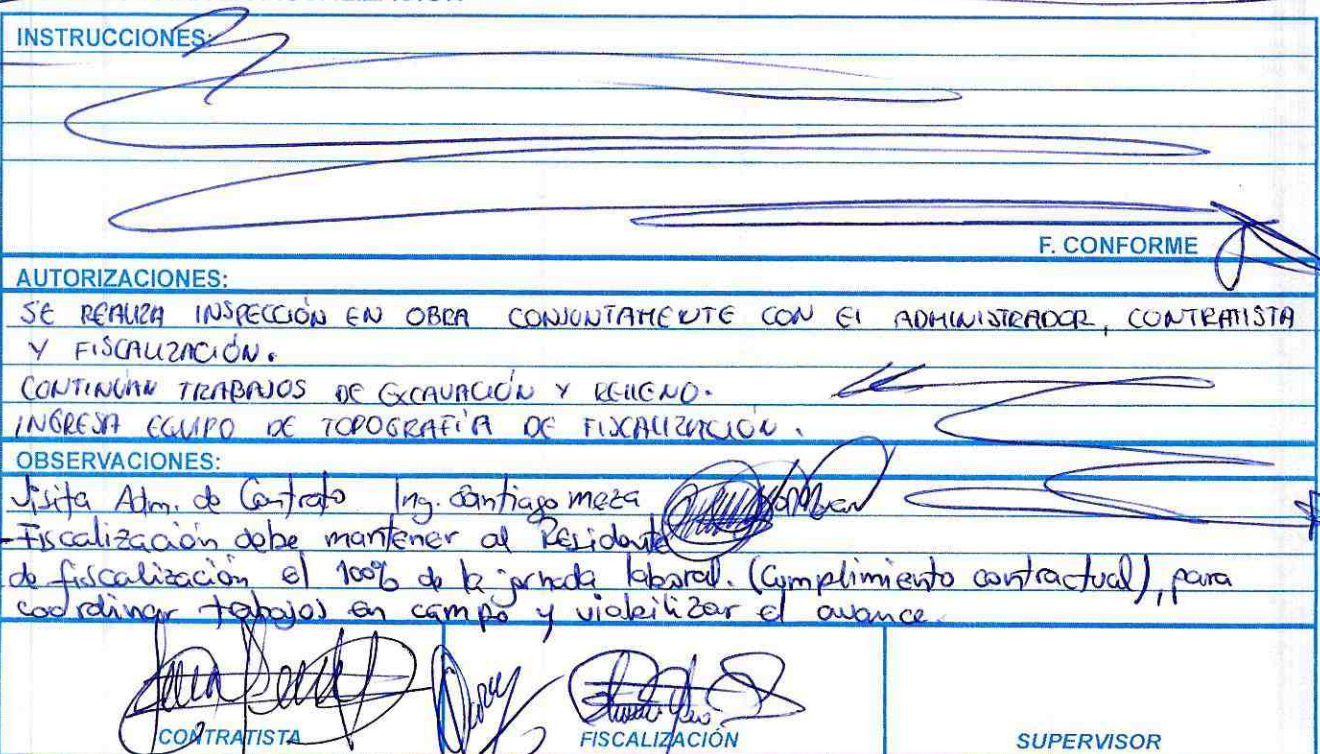 INSTRUCCIONES:
F. CONFORME
AUTORIZACIONES:
SE REALIZA INSPECCIÓN EN OBRA CONJUNTAMENTE CON El ADMINISTRADOR, CONTRATISTA
Y FISCALIZACIÓN.
CONTINUAN TRABAJOS DE EXCAVACIÓN Y RELLENO.
INGRESA EQUIPO DE TOPOGRAFÍA DE FISCALIZACIÓN.
OBSERVACIONES:
Visita Adm. de Contrato Ing. Santiago meza
-Fiscalización debe mantener al Residente
de fiscalización el 100% de la jornada laboral. (Cumplimiento contractual), para
coordinar trabajos en campo y viabilizar el avance.
CONTRATISTA
FISCALIZACIÓN
SUPERVISOR